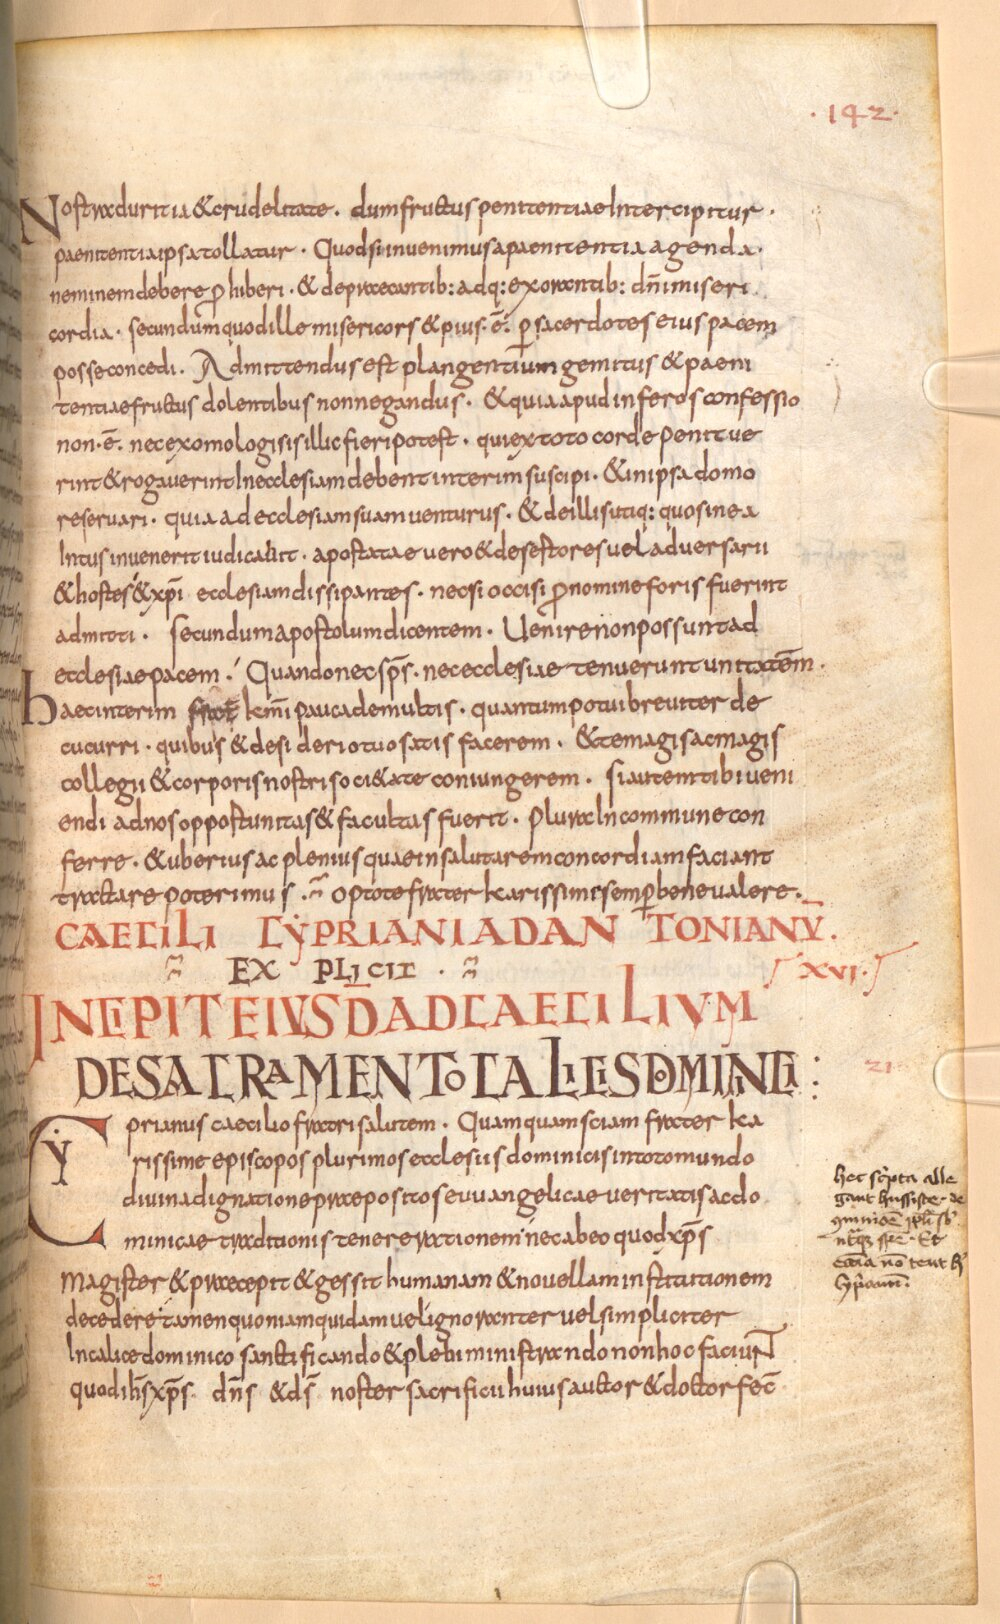 ·142·
Nostra duritia & crudelitate. dum fructus penitentiae Intercipitur·
paenitentia ipsa tollatur· Quodsi invenimus a paenitentia agenda·
neminem debere ꝓhiberi· & depraecantib: adq: exorantib: dn̄i miseri
cordia· secundum quod ille misericors & pius·ē· ꝑ sacerdotes eius pacem
posse concedi. Admittendus est plangentium gemitus & paeni
tentiae fructus dolentibus non negandus· & quia apud inferos confessio
non·ē· nec exomologisis illic fieri potest· qui ex toto corde penitue
rint & rogaverint In ecclesiam debent interim suscipi· & in ipsa domo
reservari· quia ad ecclesiam suam venturus· & de illis utiq: quos in ea
Intus invenerit iudicabit· apostatae vero & desertores vel adversarii
& hostes & xp̄i ecclesiam dissipantes· nec si occisi ꝓ nomine foris fuerint
admitti· secundum apostolum dicentem· Venire non possunt ad
ecclesiae pacem· Quando nec sp̄s· nec ecclesiae tenuerunt unitatem·
haec interim frat km̄i pauca de multis· quantum potui breviter de
cucurri· quibus & desiderio tuo satis facerem· & te magis ac magis
collegii & corporis nostri soci&ate coniungerem· si autem tibi veni
endi ad nos oppoftunitas & facultas fuerit· plura In commune con
ferre· & uberius ac plenius quae in salutarem concordiam faciant
tractare poterimus· optote frater karissime semꝑ bene valere·
CAECILI CYPRIANI AD ANTONIANV̄.
EXPLICIT·
XVI·
INCIPIT EIVSD̄ AD CAECILIVM
DE SACRAMENTO CALICIS DOMINICI:
21
Cyprianus caecilio fratri salutem· Quamquam sciam frater ka
rissime episcopos plurimos ecclesiis dominicis in toto mundo
divina dignatione praepositos evvangelicae veritatis ac do
minicae traditionis tenere rationem nec ab eo quod xp̄s
magister & praecepit & gessit humana m & novellam institutionem
decedere tamen quoniam quidam vel ignoranter vel simpliciter
In calice dominico sanctificando & plebi ministrando non hoc faciunt
quod ih̄s xp̄s· dn̄s & ds̄ noster sacrificii huius auctor & doctor fec̄
hec sc̄pta alle
gant hussiste de